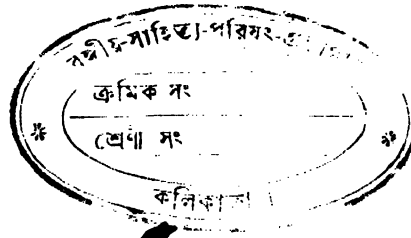 বঙ্গীয়-সাহিত্য-পরিষৎ-
ক্রমিক সং
শ্রেণী সং
কলিকাতা